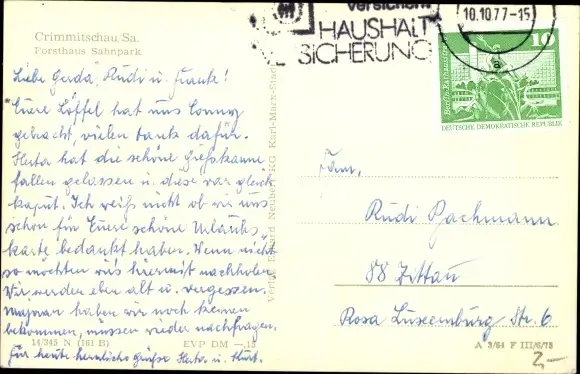 Crimmitschau/Sa.
Forsthaus Sahnpark
versichert
HAUSHALT
SICHERUNG
10.10.77-15
10
DEUTSCHE DEMOKRATISCHE REPUBLIK
Liebe Gerda, Rudi u. Frank!
Eure Löffel hat uns Conny
gebracht, vielen Dank dafür.
Herta hat die schöne Gießkanne
fallen gelassen u. diese war gleich
kaput. Ich weiß nicht ob wir uns
schon für Euere schöne Urlaubs
karte bedankt haben. Wenn nicht
so möchten wir's hiermit nachholen
Wir werden eben alt u. vergessen.
Majoran haben wir noch keinen
bekommen, müssen wieder nachfragen.
Für heute herzliche Grüße Herta u. Kurt.
14/345 N (161 B)
EVP DM —.15
Verlag Erhard Neubert KG Karl-Marx-Stadt
Fam.
Rudi Pachmann
88 Zittau
Rosa Luxemburg Str. 6
A 3/64 F III/6/75
2,-